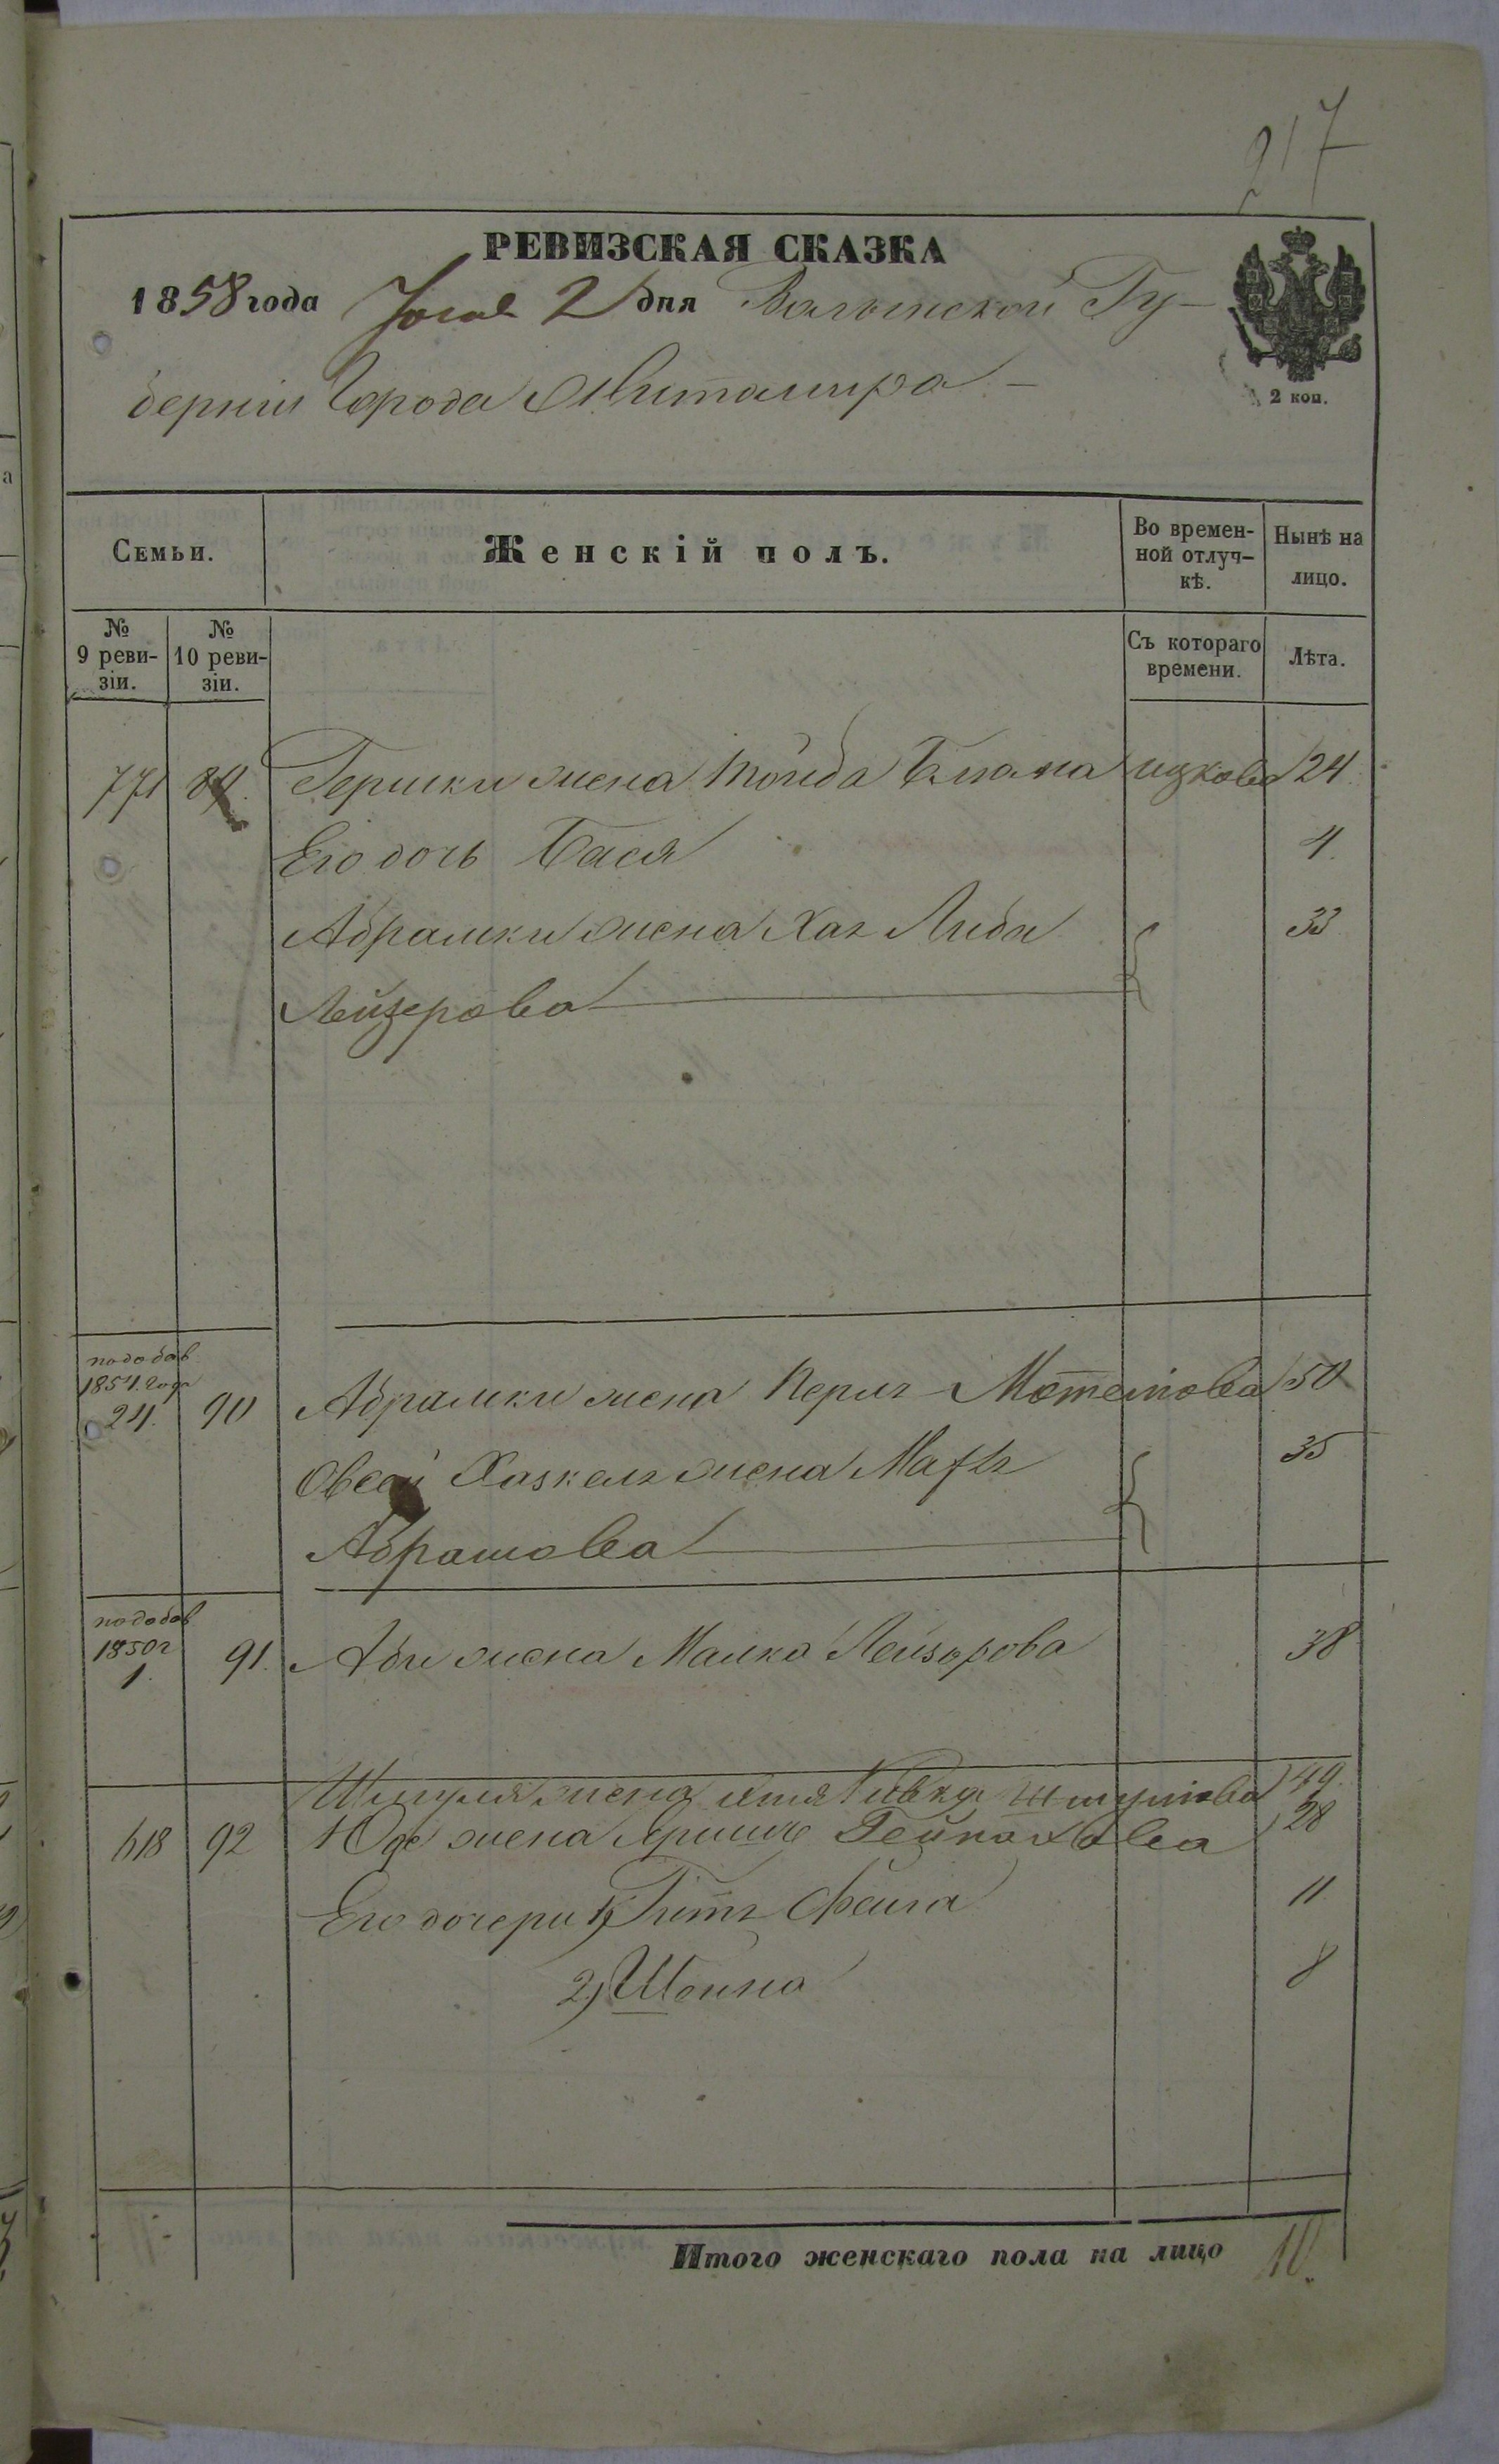 217
РЕВИЗСКАЯ СКАЗКА
1858 года Юня 2 дня Волынской Гу-
берніи Города Житомира -
2 коп.
Семьи.
Женскій полъ.
Во времен-
ной отлуч-
кѣ.
Нынѣ на
лицо.
№
9 реви-
зіи.
№
10 реви-
зіи.
Съ котораго
времени.
Лѣта.
771 89. Гершки жена Тойба Блюма Ицкова 24
Его дочь Бася 4.
Абрамки жена Хая Либа 33
Лейзерова
по добав
1854. года
24. 90 Абрамки жена Перля Мотелiова 50
Овсей Хаскеля жена
35
Абрамова
по добав
1850г
1. 91. Абы жена Малка Лейзорова 38
Шмуля жена Ривка Шмулiова 49.
618 92 Юде жена Гейноховва 28
Его дочери 1, Гитя Фейга 11
2, Шейна 8
Итого женскаго пола на лицо 10.